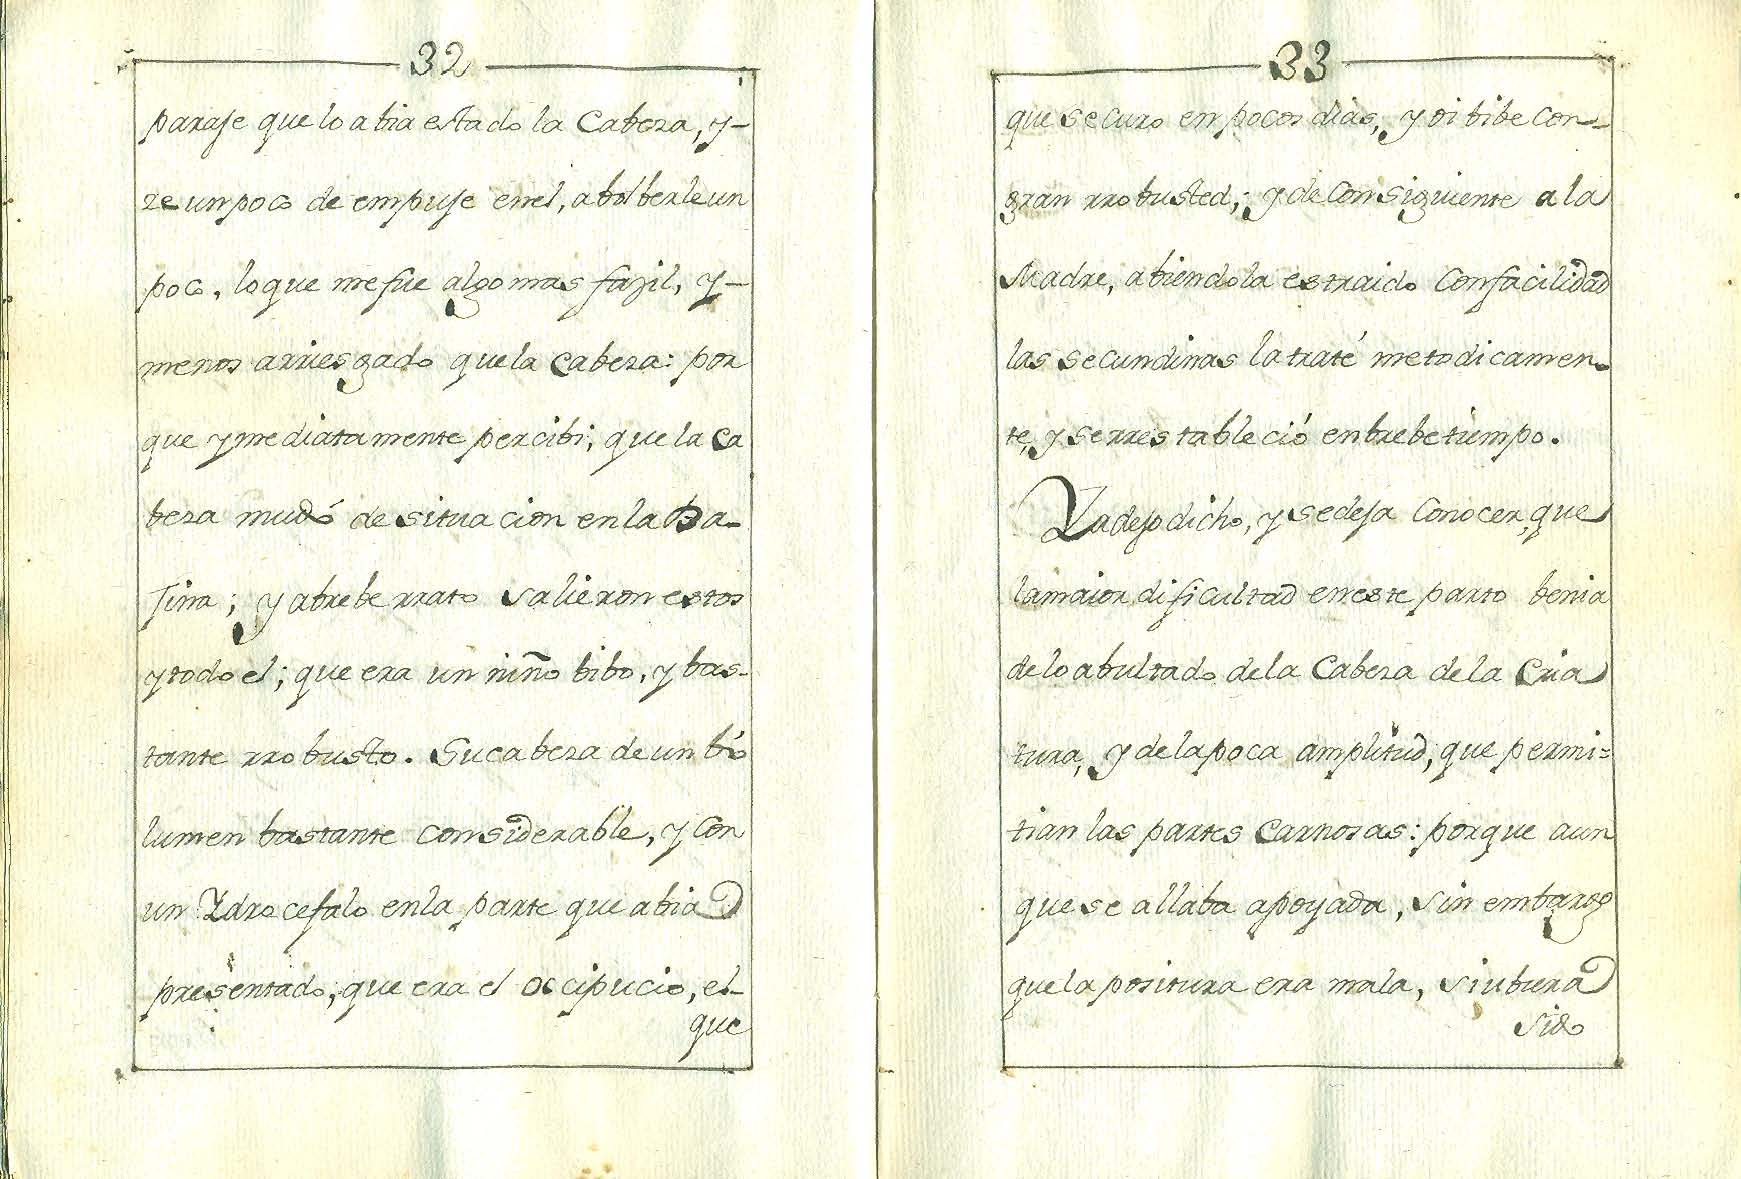 32
paraje que lo abia estado la Cabeza, y-
ze un poco de empuje en el, a bolberle un
poco, lo que me fue algo mas fazil, y-
menos arriesgado que la Cabeza: por
que ymediatamente percibi; que la Ca
beza mudó de situacion en la Ba-
jina; y a brebe rrato salieron estos
y todo el; que era un niño bibo, y bas-
tante rrobusto. Su cabeza de un bo
lumen bastante considerable, y con
un Ydrocefalo en la parte que abia
presentado, que era el Occipucio, el-
que
33
que se curo en pocos dias, y oi bibe con-
gran rrobusted; y de consiguiente a la
Madre, abiendola estraido con facilidad
las secundinas la traté metodicamen-
te, y se rrestableció en brebe tiempo.
Ya dejo dicho, y se deja conocer, que
la maior dificultad en este parto benia
de lo abultado de la Cabeza de la Cria
tura, y de la poca amplitud, que permi=
tian las partes carnosas: porque aun
que se allaba apoyada, sin embargo
que la positura era mala, si ubiera
sido